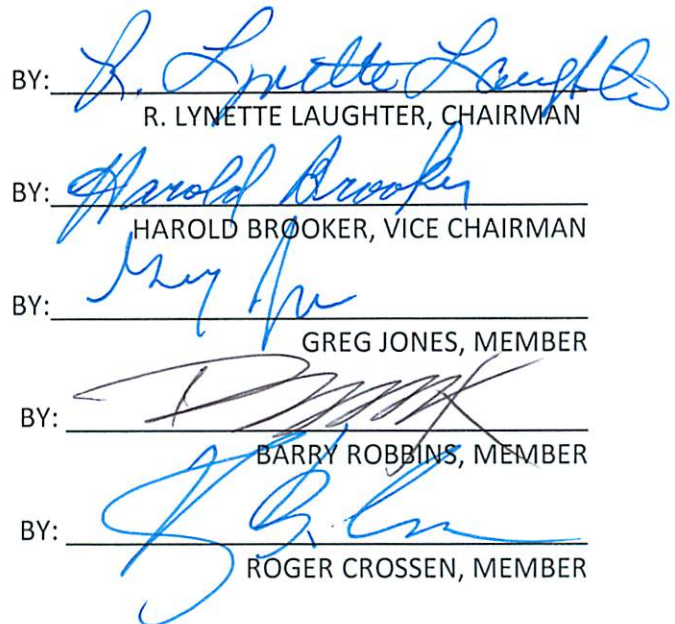 BY: R. Lynette Laughter
R. LYNETTE LAUGHTER, CHAIRMAN
BY: Harold Brooker
HAROLD BROOKER, VICE CHAIRMAN
BY:
GREG JONES, MEMBER
BY:
BARRY ROBBINS, MEMBER
BY:
ROGER CROSSEN, MEMBER